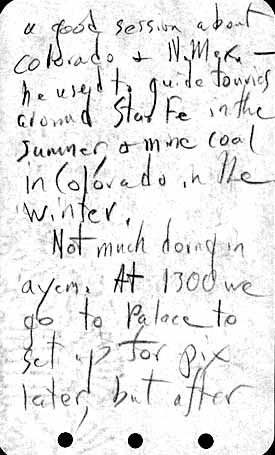 a good session about
Colorado & N. Mex. —
he used to guide tourists
around Santa Fe in the
summer & mine coal
in Colorado in the
winter.
Not much doing in
ayem. At 1300 we
go to Palace to
set up for pix
later, but after